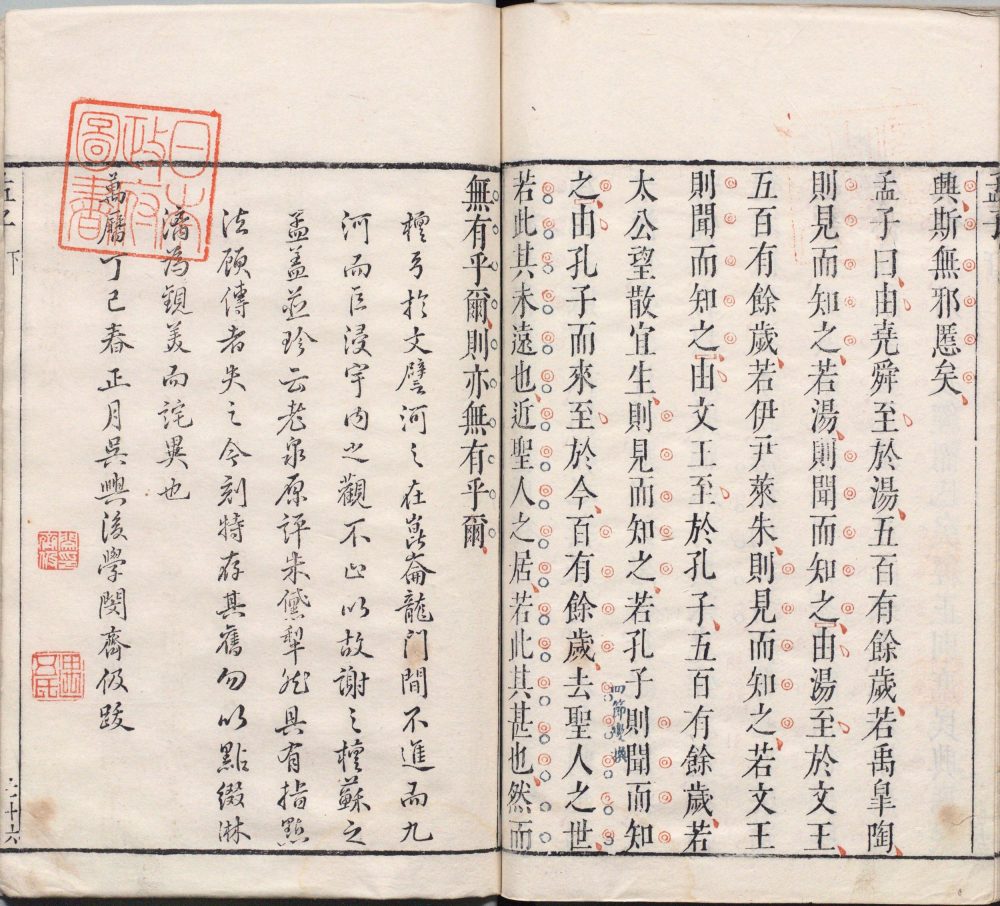 孟子
興斯無邪慝矣
孟子曰由堯舜至於湯五百有餘歲若禹皐陶
則見而知之若湯則聞而知之由湯至於文王
五百有餘歲若伊尹萊朱則見而知之若文王
則聞而知之由文王至於孔子五百有餘歲若
太公望散宜生則見而知之若孔子則聞而知
之由孔子而來至於今百有餘歲去聖人之世
四節變
若此其未遠也近聖人之居若此其甚也然而
無有乎爾則亦無有乎爾
檀弓於文譬河之在崑崙龍门間不進而九
河而巨浸宇内之觀不止以故謝之檀蘇之
孟盖並珍云老泉原評朱黛犁然具有指點
法願傳者失之今刻特存其舊勿以點綴淋
漓為觀美而詫異也
萬曆丁巳春正月吳興後學閔齊伋跋
日本
政府
圖書
孟子 下
七十六